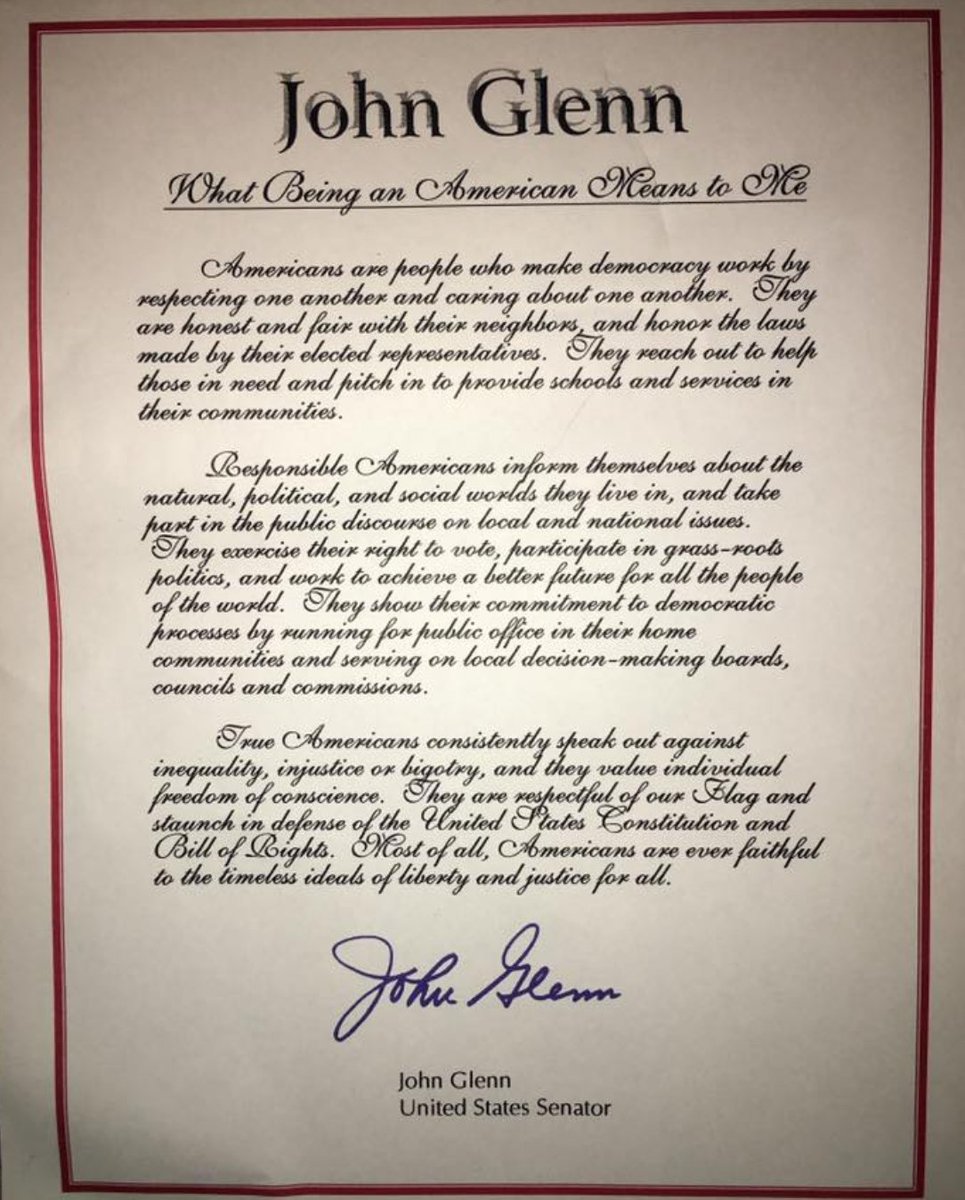 John Glenn
What Being an American Means to Me
Americans are people who make democracy work by
respecting one another and caring about one another. They
are honest and fair with their neighbors, and honor the laws
made by their elected representatives. They reach out to help
those in need and pitch in to provide schools and services in
their communities.
Responsible Americans inform themselves about the
natural, political, and social worlds they live in, and take
part in the public discourse on local and national issues.
They exercise their right to vote, participate in grass-roots
politics, and work to achieve a better future for all the people
of the world. They show their commitment to democratic
processes by running for public office in their home
communities and serving on local decision-making boards,
councils and commissions.
True Americans consistently speak out against
inequality, injustice or bigotry, and they value individual
freedom of conscience. They are respectful of our Flag and
staunch in defense of the United States Constitution and
Bill of Rights. Most of all, Americans are ever faithful
to the timeless ideals of liberty and justice for all.
John Glenn
John Glenn
United States Senator